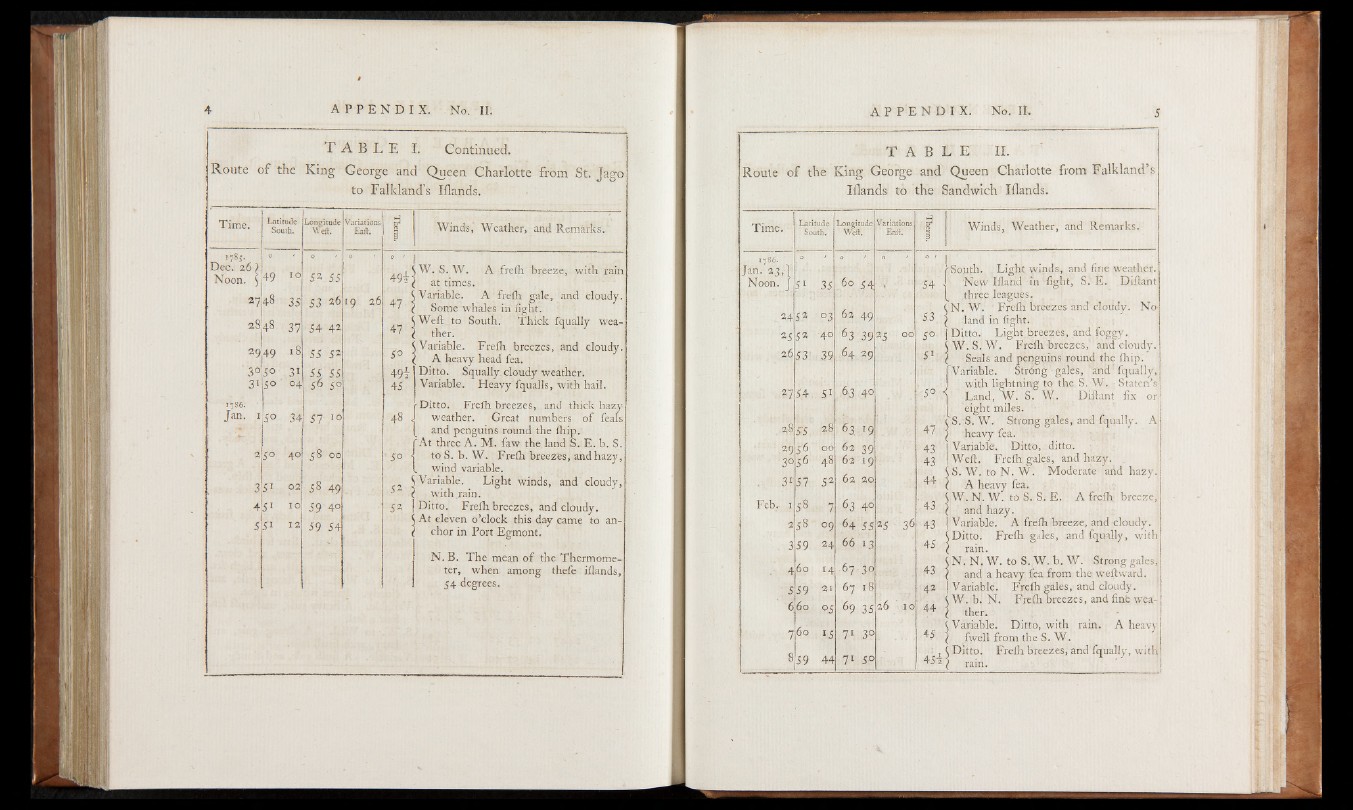 4 APPENDIX. No. II.
TABLE I. Continued.
Route of the King George and Queen Charlotte from St. Jago
to Falkland's Iſlands.
Time. Latitude South. Longitude Weſt. Variations Eaſt. Therm. Winds, Weather, and Remarks.
1785. ° ′ ° ′ ° ° ′
Dec. 26 Noon. 49 10 52 55 49½ W. S. W. A freſh breeze, with rain
at times.
27 48 35 53 26 19 26 47 Variable. A freſh gale, and cloudy.
Some whales in ſight.
28 48 37 54 42 47 Weſt to South. Thick ſqually wea-
ther.
29 49 18 55 52 50 Variable. Freſh breezes, and cloudy.
A heavy head ſea.
30 50 31 55 55 49½ Ditto. Squally cloudy weather.
31 50 04 56 50 45 Variable. Heavy ſqualls, with hail.
1786.
Jan. 1 50 34 57 10 48 Ditto. Freſh breezes, and thick hazy
weather. Great numbers of ſeals
and penguins round the ſhip.
2 50 40 58 00 50 At three A. M. ſaw the land S. E. b. S.
to S. b. W. Freſh breezes, and hazy,
wind variable.
3 51 02 58 49 52 Variable. Light winds, and cloudy,
with rain.
4 51 10 59 40 52 Ditto. Freſh breezes, and cloudy.
5 51 12 59 54 At eleven o'clock this day came to an-
chor in Port Egmont.
N. B. The mean of the Thermome-
ter, when among theſe iſlands,
54 degrees.
APPENDIX. No. II. 5
TABLE II.
Route of the King George and Queen Charlotte from Falkland's
Iſlands to the Sandwich Iſlands.
Time. Latitude South. Longitude Weſt. Variations Eaſt. Therm. Winds, Weather, and Remarks.
1786. ° ′ ° ′ ° ′ ° ′
Jan. 23, Noon. 51 35 60 54 54 South. Light winds, and fine weather.
New Iſland in ſight, S. E. Diſtant
three leagues.
24 52 03 62 49 53 N. W. Freſh breezes and cloudy. No
land in ſight.
25 52 40 63 39 25 00 50 Ditto. Light breezes, and foggy.
26 53 39 64 29 51 W. S. W. Freſh breezes, and cloudy.
Seals and penguins round the ſhip.
27 54 51 63 40 50 Variable. Strong gales, and ſqually,
with lightning to the S. W. Staten's
Land, W. S. W. Diſtant ſix or
eight miles.
28 55 28 63 19 47 S. S. W. Strong gales, and ſqually. A
heavy ſea.
29 56 00 62 39 43 Variable. Ditto, ditto.
30 56 48 62 19 43 Weſt. Freſh gales, and hazy.
31 57 52 62 20 44 S. W. to N. W. Moderate and hazy.
A heavy ſea.
Feb. 1 58 7 63 40 43 W. N. W. to S. S. E. A freſh breeze,
and hazy.
2 58 09 64 55 25 36 43 Variable. A freſh breeze, and cloudy.
3 59 24 66 13 45 Ditto. Freſh gales, and ſqually, with
rain.
4 60 14 67 30 43 N. N. W. to S. W. b. W. Strong gales,
and a heavy ſea from the weſtward.
5 59 21 67 18 42 Variable. Freſh gales, and cloudy.
6 60 05 69 35 26 10 44 W. b. N. Freſh breezes, and fine wea-
ther.
7 60 15 71 30 45 Variable. Ditto, with rain. A heavy
ſwell from the S. W.
8 59 44 71 50 45½ Ditto. Freſh breezes, and ſqually, with
rain.